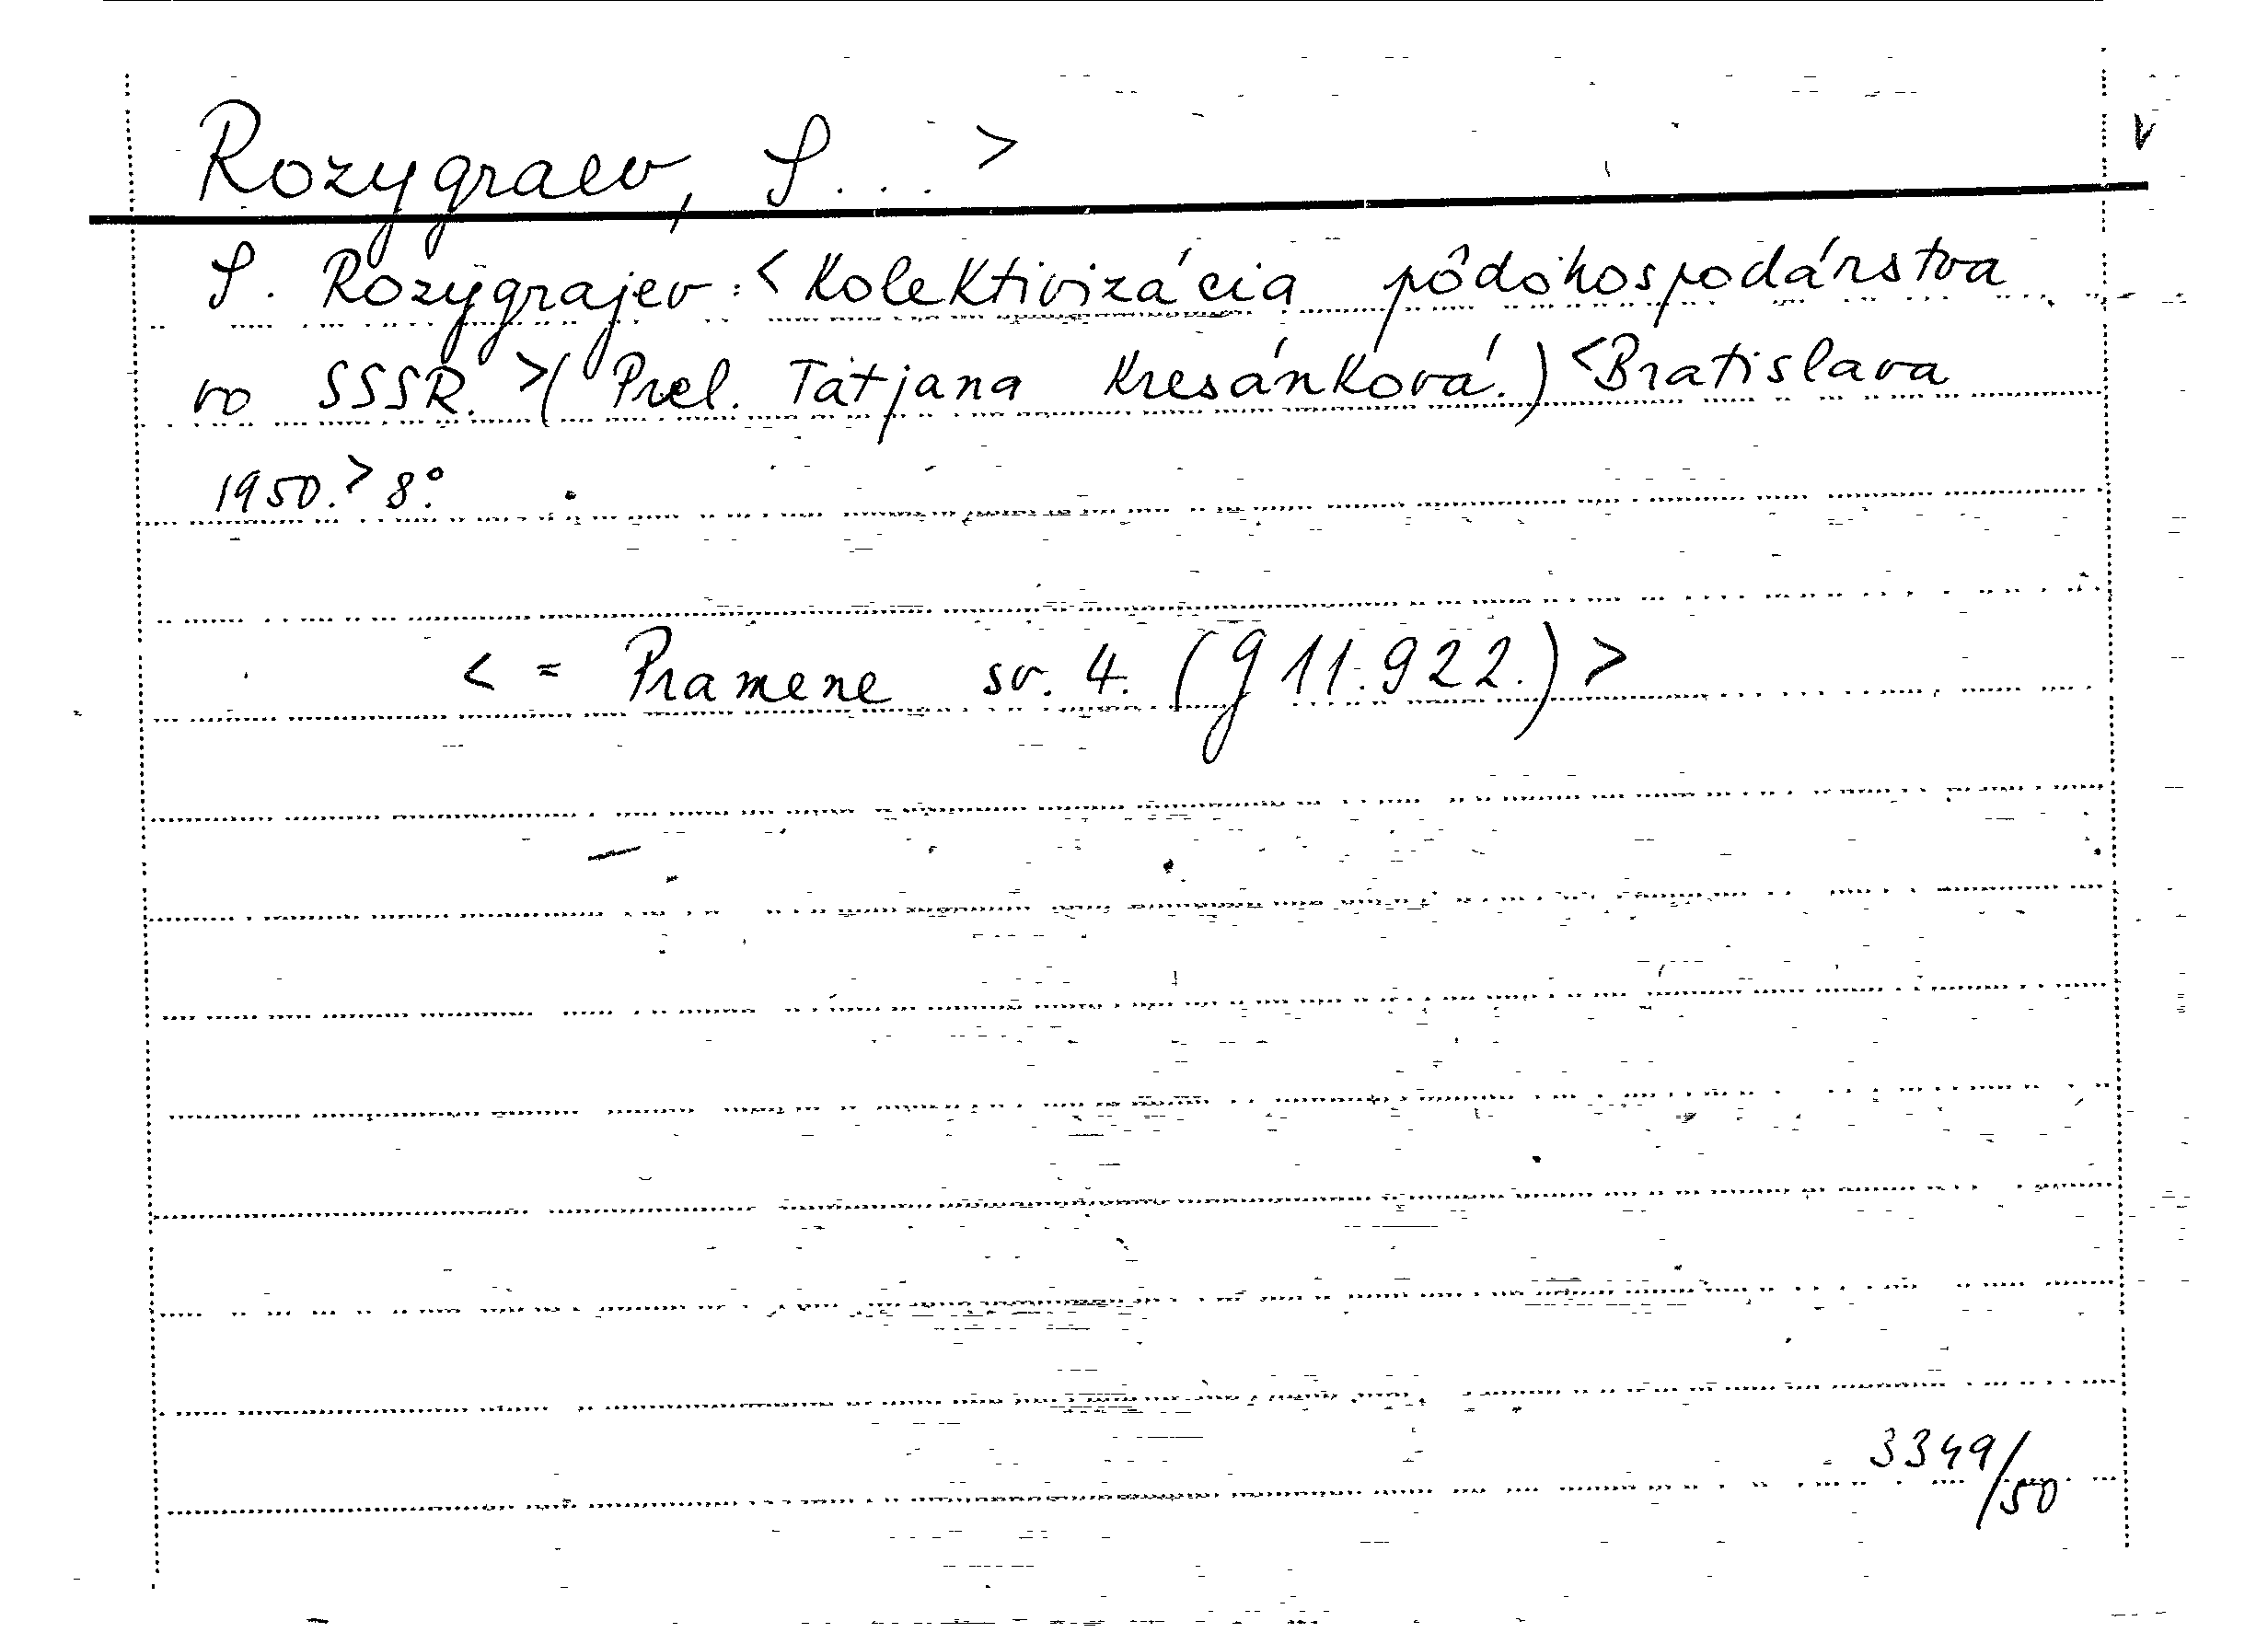 Rozygraev, S... >
V
S. Rozygrajev: < Kolektivizácia pôdohospodárstva
vo SSSR. > (Prel. Tatjana Kresánková.) < Bratislava
1950. > 8°.
< = Pramene sv. 4. (g 11.922.) >
3349/50